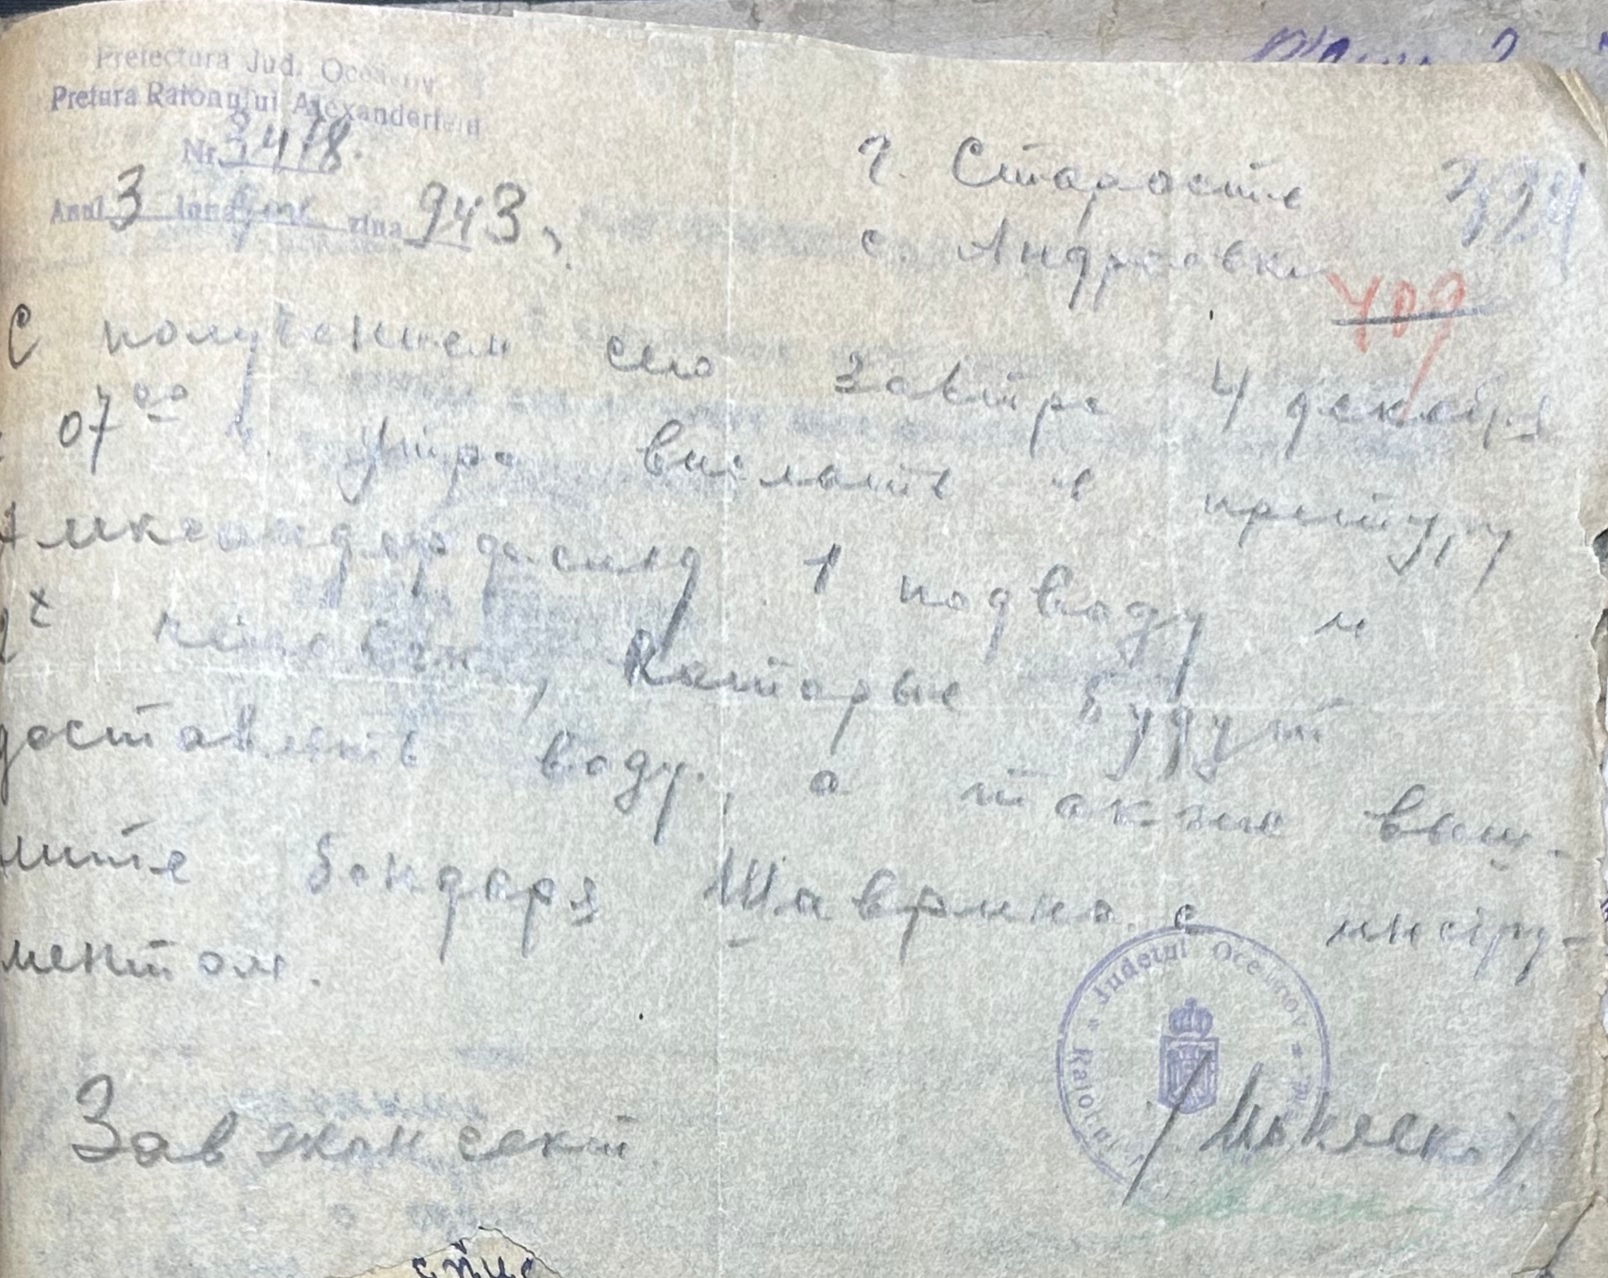 Prefectura Jud. Oceacov
Pretura Raionului Alexanderfeld
Nr. 3418.
Anul 3 luna ziua 943
г. Старосте
с. Андреевки
709
С получением сего завтра 4 декабря
07⁰⁰ утра выслать в претуру
Александерфельд 1 подводу и
2х человек, которые будут
доставлять воду, а также выш-
лите бондаря Шаврина с инстру-
ментом.
Judetul Oceacov
Зав экон сект.